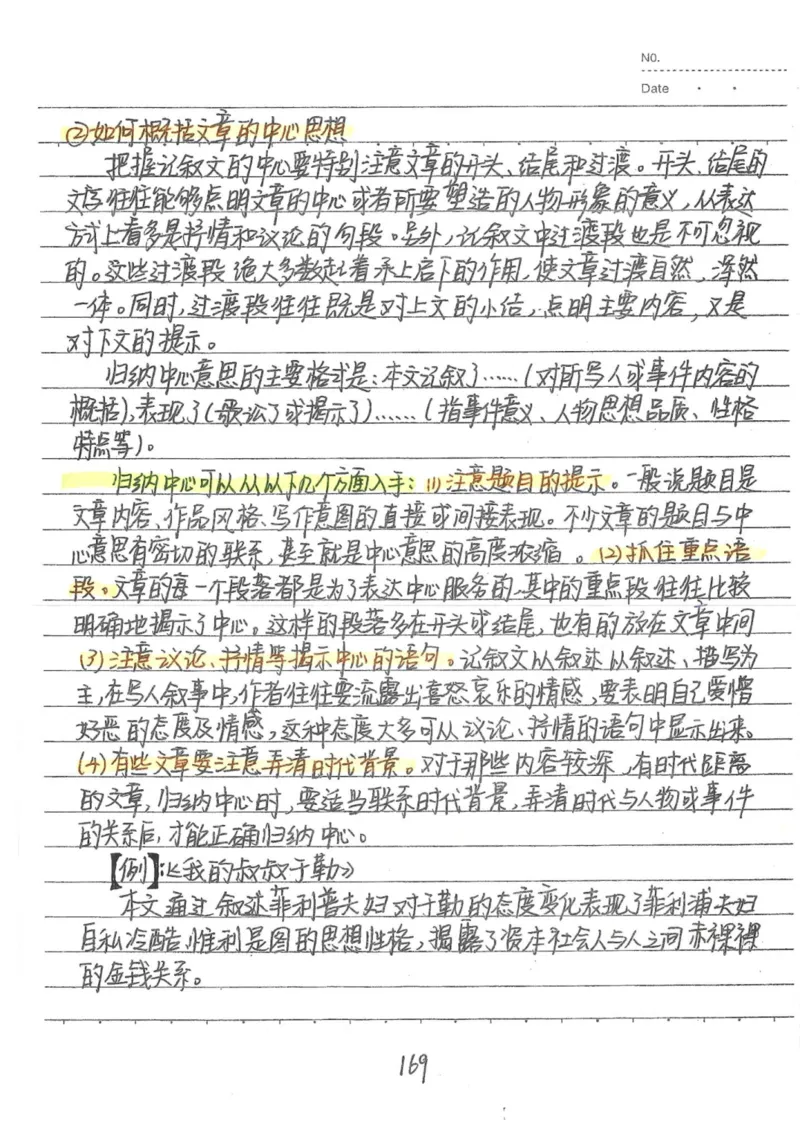 NO.
Date
②如何概括文章的中心思想
把握记叙文的中心要特别注意文章的开头、结尾和过渡。开头、结尾的
文字往往能够点明文章的中心或者所要塑造的人物形象的意义，从表达
方式上看多是抒情和议论的句段。另外，记叙文中过渡段也是不可忽视
的。这些过渡段绝大多数起着承上启下的作用，使文章过渡自然，浑然
一体。同时，过渡段往往既是对上文的小结，点明主要内容，又是
对下文的提示。
归纳中心意思的主要格式是：本文记叙了……（对所写人或事件内容的
概括），表现了（歌讼了或揭示了）……（指事件意义、人物思想品质、性格
特点等）。
归纳中心可以从从以下几个方面入手：(1)注意题目的提示。一般说题目是
文章内容、作品风格、写作意图的直接或间接表现。不少文章的题目与中
心意思有密切的联系，甚至就是中心意思的高度浓缩。(2)抓住重点语
段。文章的每一个段落都是为了表达中心服务的，其中的重点段往往比较
明确地揭示了中心。这样的段落多在开头或结尾，也有的放在文章中间
(3)注意议论、抒情等揭示中心的语句。记叙文以叙述从叙述、描写为
主，在写人叙事中，作者往往要流露出喜怒哀乐的情感，要表明自己爱憎
好恶的态度及情感，这种态度大多可从议论、抒情的语句中显示出来。
(4)有些文章要注意弄清时代背景。对于那些内容较深，有时代距离
的文章，归纳中心时，要适当联系时代背景，弄清时代与人物或事件
的关系后，才能正确归纳中心。
【例】：《我的叔叔于勒》
本文通过叙述菲利普夫妇对于勒的态度变化表现了菲利浦夫妇
自私冷酷，惟利是图的思想性格，揭露了资本社会人与人之间赤裸裸
的金钱关系。
169